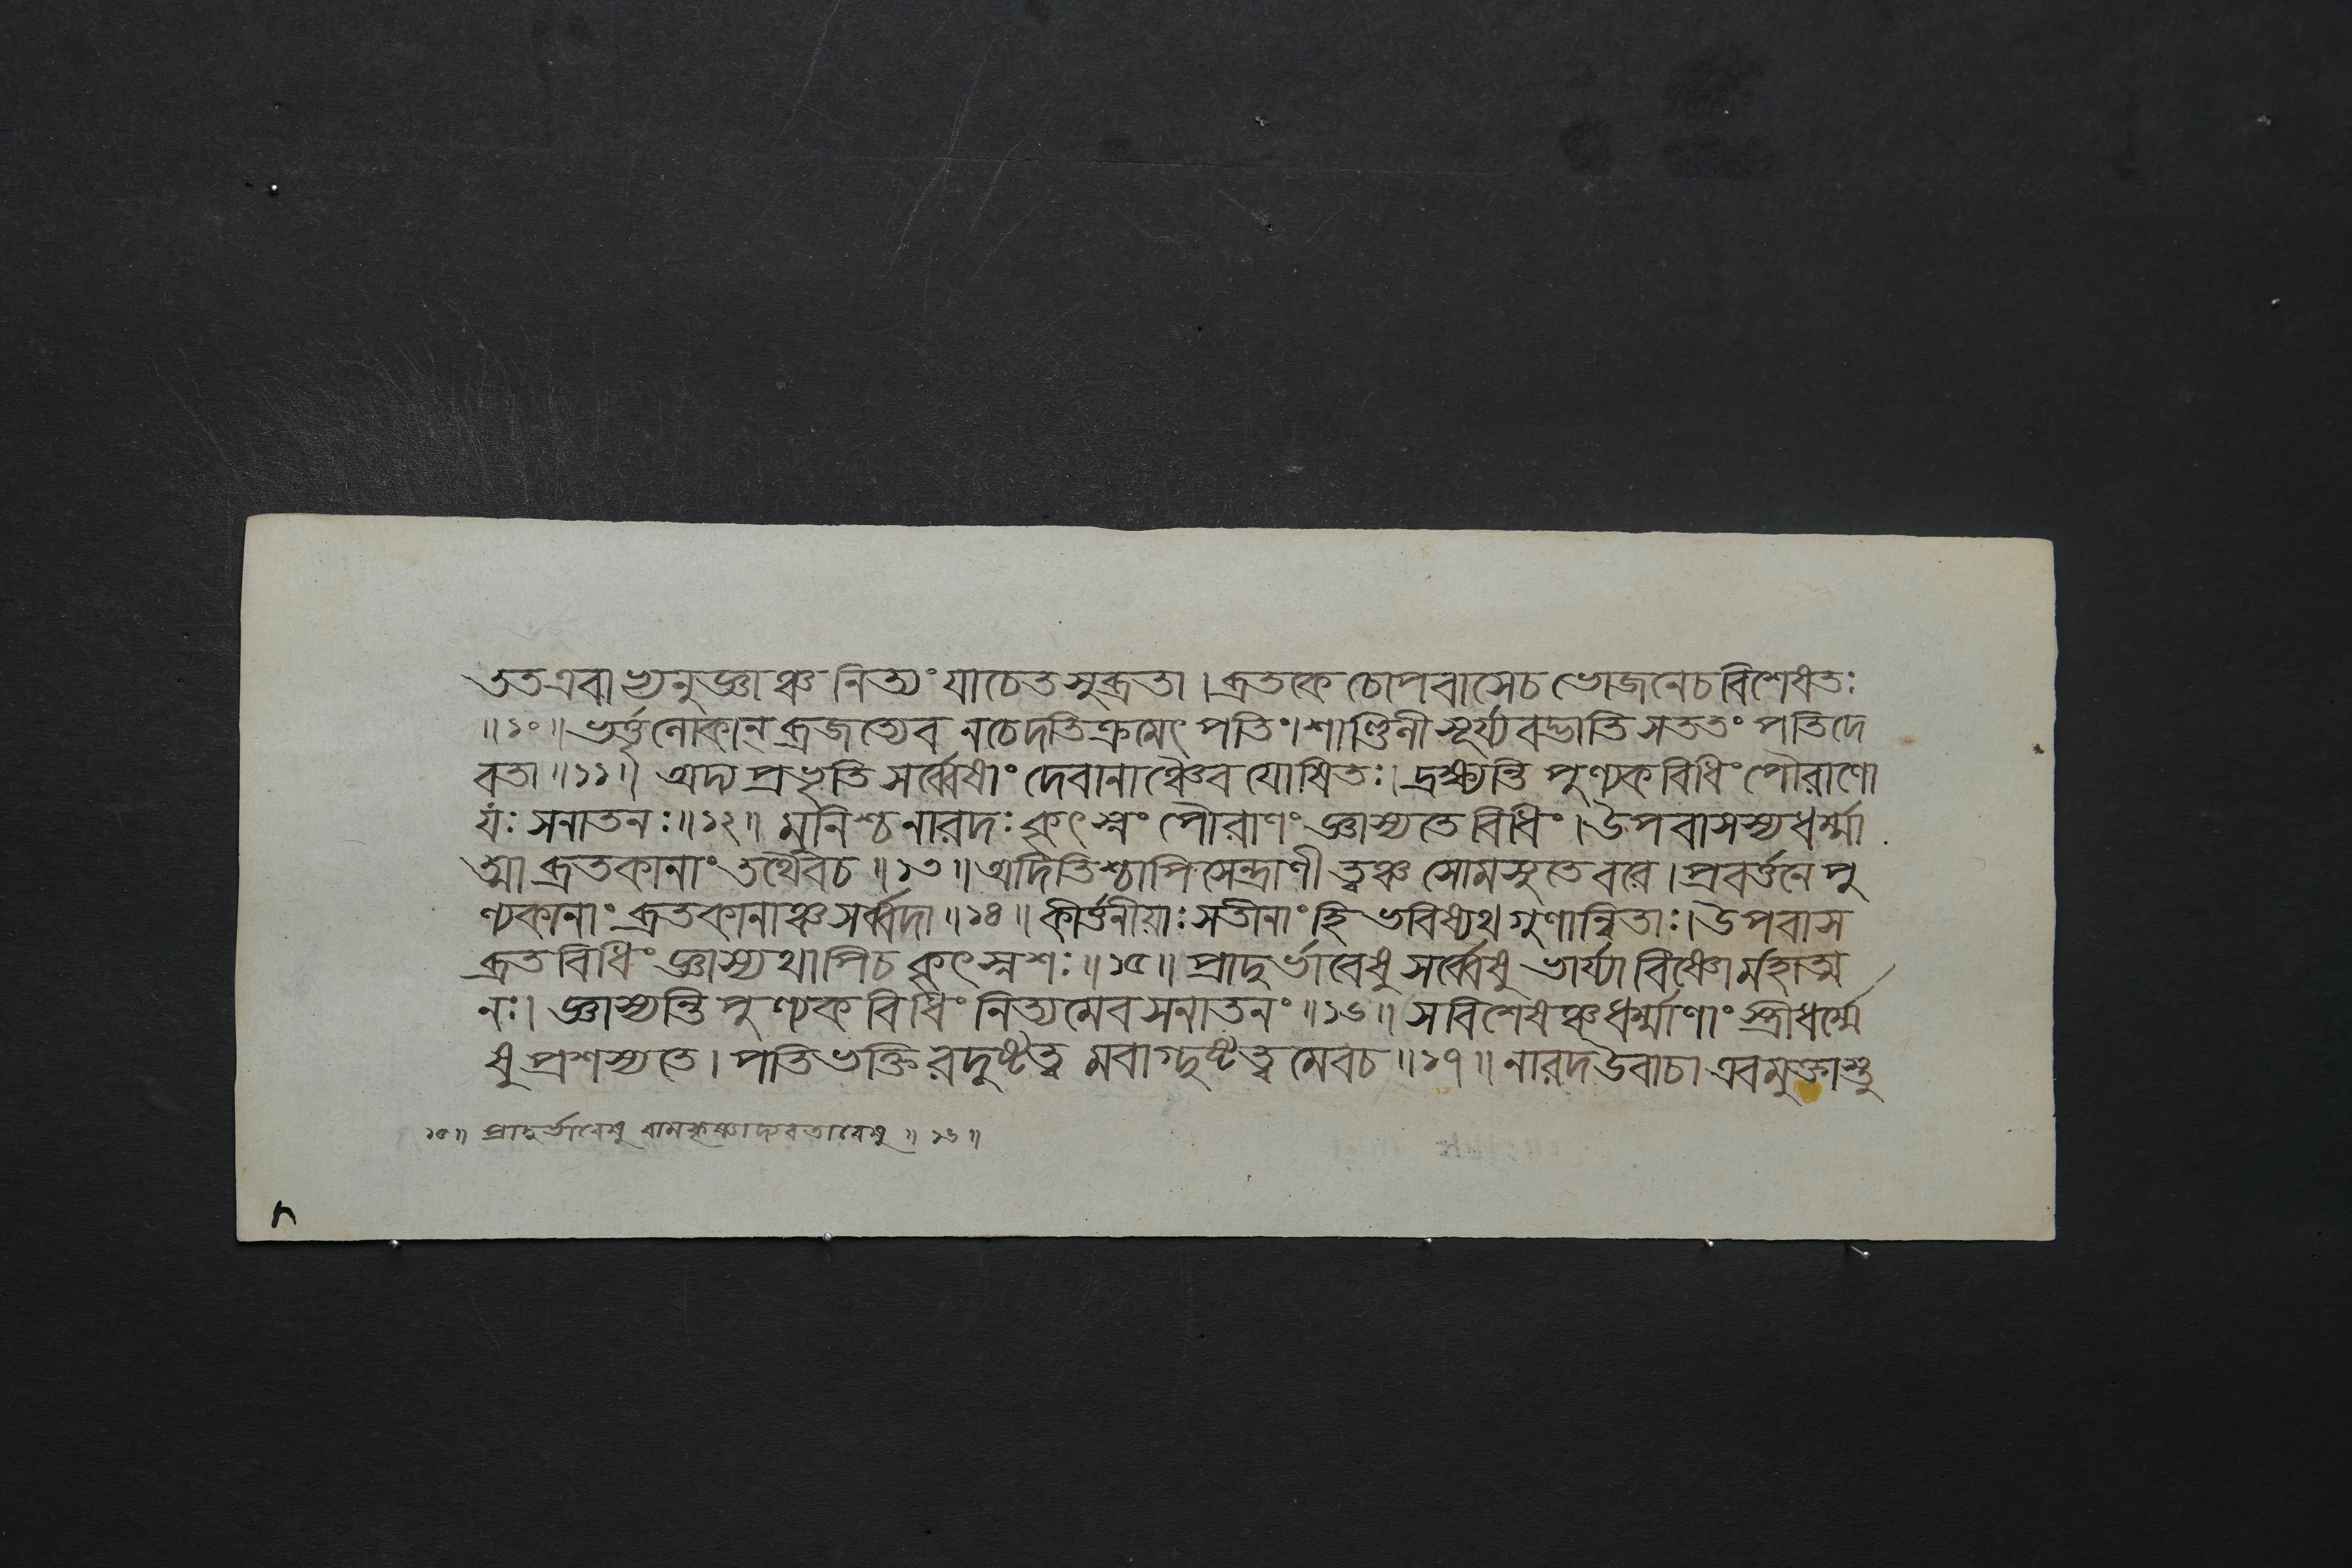 ততএবাভ্যনুজ্ঞাঞ্চ নিত্যং যাচেত সুব্রতা । ব্রতকে চোপবাসেচ ভোজনেচ বিশেষতঃ
॥ ১০ ॥ ভর্ত্তৃলোকান্ ব্রজত্যেব নচেদতিক্রমেৎ পতিং । শাণ্ডিনী সূর্য্যবদ্ভাতি সততং পতিদে
বতা ॥ ১১ ॥ অদ্য প্রভৃতি সর্ব্বেষাং দেবানাঞ্চৈব যোষিতঃ । দ্রক্ষ্যন্তি পুণ্যক বিধিং পৌরাণো
যং সনাতনঃ ॥ ১২ ॥ মুনিশ্চ নারদঃ কৃৎস্নং পৌরাণং জ্ঞাস্যতে বিধিং । উপবাসস্য ধর্ম্মা
ত্মা ব্রতকানাং তথৈবচ ॥ ১৩ ॥ অদিতিশ্চাপি সেন্দ্রাণী ত্বঞ্চ সোমসুতে বরে । প্রবর্ত্তনে পু
ণ্যকানাং ব্রতকানাঞ্চ সর্ব্বদা ॥ ১৪ ॥ কীর্ত্তনীয়াঃ সতীনাং হি ভবিষ্যথ গুণান্বিতাঃ । উপবাস
ব্রত বিধিং জ্ঞাস্যথাপিচ কৃৎস্নশঃ ॥ ১৫ ॥ প্রাদুর্ভাবেষু সর্ব্বেষু ভার্য্যা বিষ্ণোর্মহাত্ম
নঃ । জ্ঞাস্যন্তি পুণ্যক বিধিং নিত্যমেব সনাতনং ॥ ১৬ ॥ সবিশেষঞ্চ ধর্ম্মাণাং স্ত্রীধর্ম্মে
ষু প্রশস্যতে । পতিভক্তি রদুষ্টত্ব মবাগ্দুষ্টত্ব মেবচ ॥ ১৭ ॥ নারদ উবাচ । এবমুক্তাস্তু
১৫ ॥ প্রাদুর্ভাবেষু রামকৃষ্ণাদ্যবতারেষু ॥ ১৬ ॥